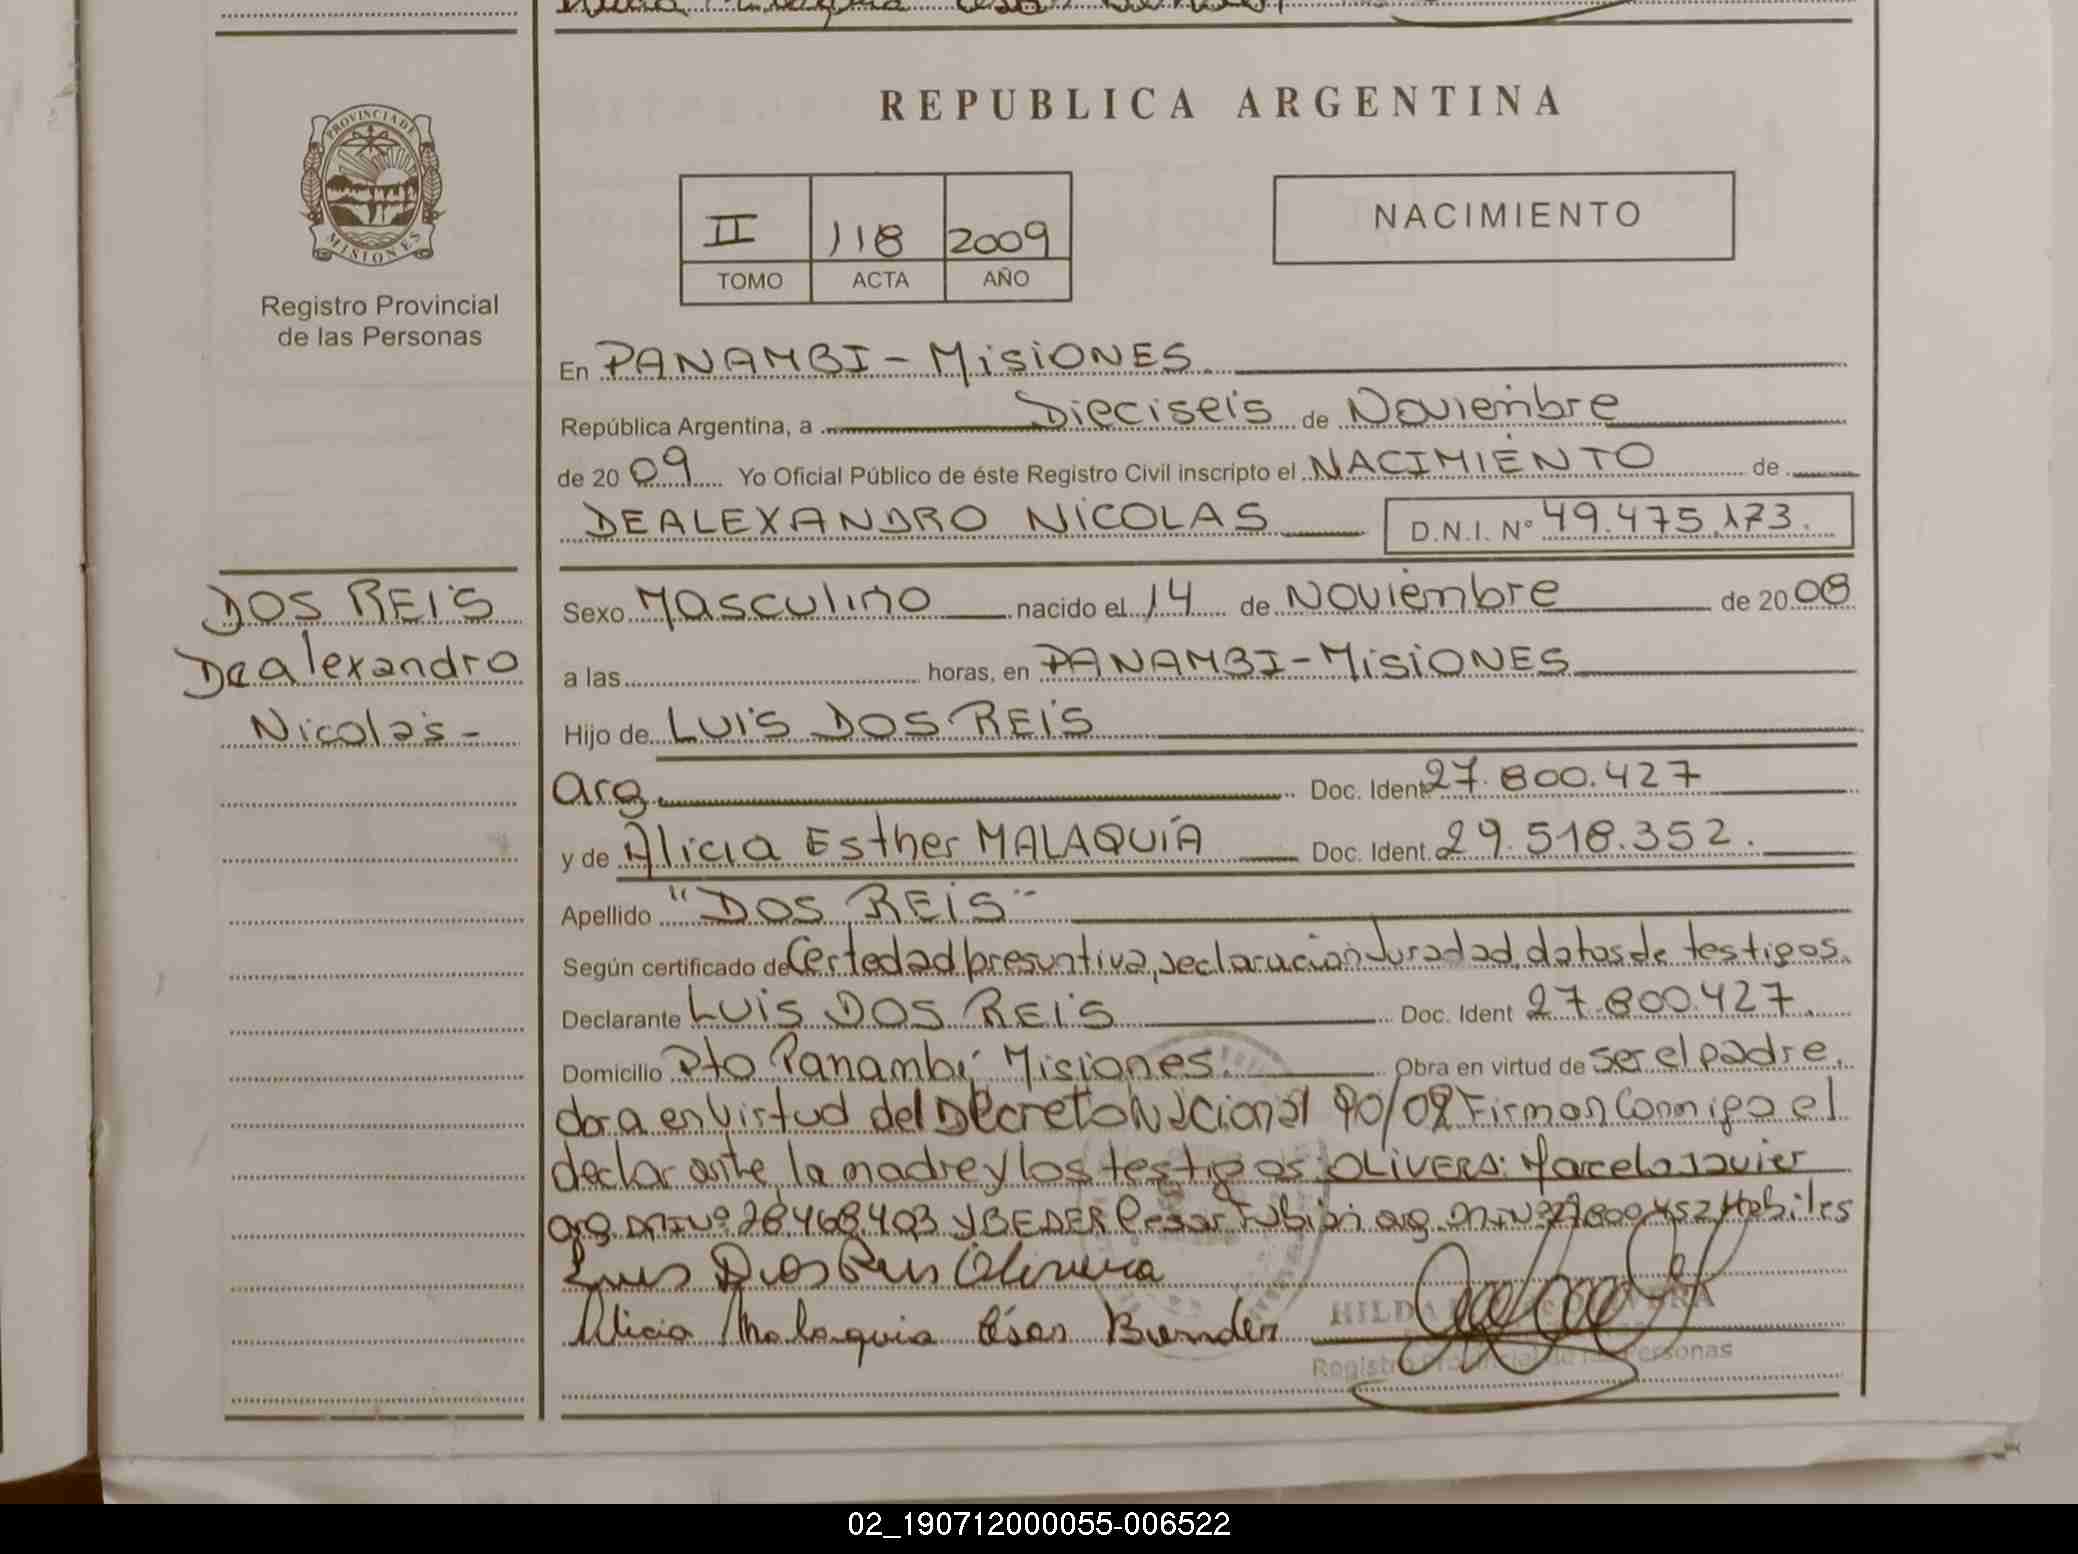 PROVINCIA DE
MISIONES
Registro Provincial
de las Personas
REPUBLICA ARGENTINA
II 118 2009
TOMO ACTA AÑO
NACIMIENTO
En PANAMBI - MisiONES
República Argentina, a Dieciseis de Noviembre
de 20 09 Yo Oficial Público de éste Registro Civil inscripto el NACIMIENTO de
DEALEXANDRO NICOLAS D.N.I. Nº 49.475.173.
DOS REIS
Dealexandro
Nicolas -
Sexo Masculino nacido el 14 de Noviembre de 20 08
a las horas, en PANAMBI - MisiONES
Hijo de LUIS DOS REIS
arg. Doc. Ident. 27.800.427
y de Alicia Esther MALAQUÍA Doc. Ident. 29.518.352.
Apellido "DOS REIS"
Según certificado de Cert edad presuntiva, declaracion Jurada d, datos de testigos.
Declarante LUIS DOS REIS Doc. Ident 27.800.427.
Domicilio Pto Panambí Misiones. Obra en virtud de ser el padre.
dora en Virtud del Decreto Nacional 90/09 Firman Conmigo el
declarante, la madre y los testigos: OLIVERA: Marcelo Javier
arg DNI Nº 28.468.403 y BEDER Cesar Fabian arg. DNI Nº 27.800.452 Habiles
Luis Dos Reis Olivera
Alicia Malaquia César Bender
HILDA
Registro Provincial de las Personas
02_190712000055-006522